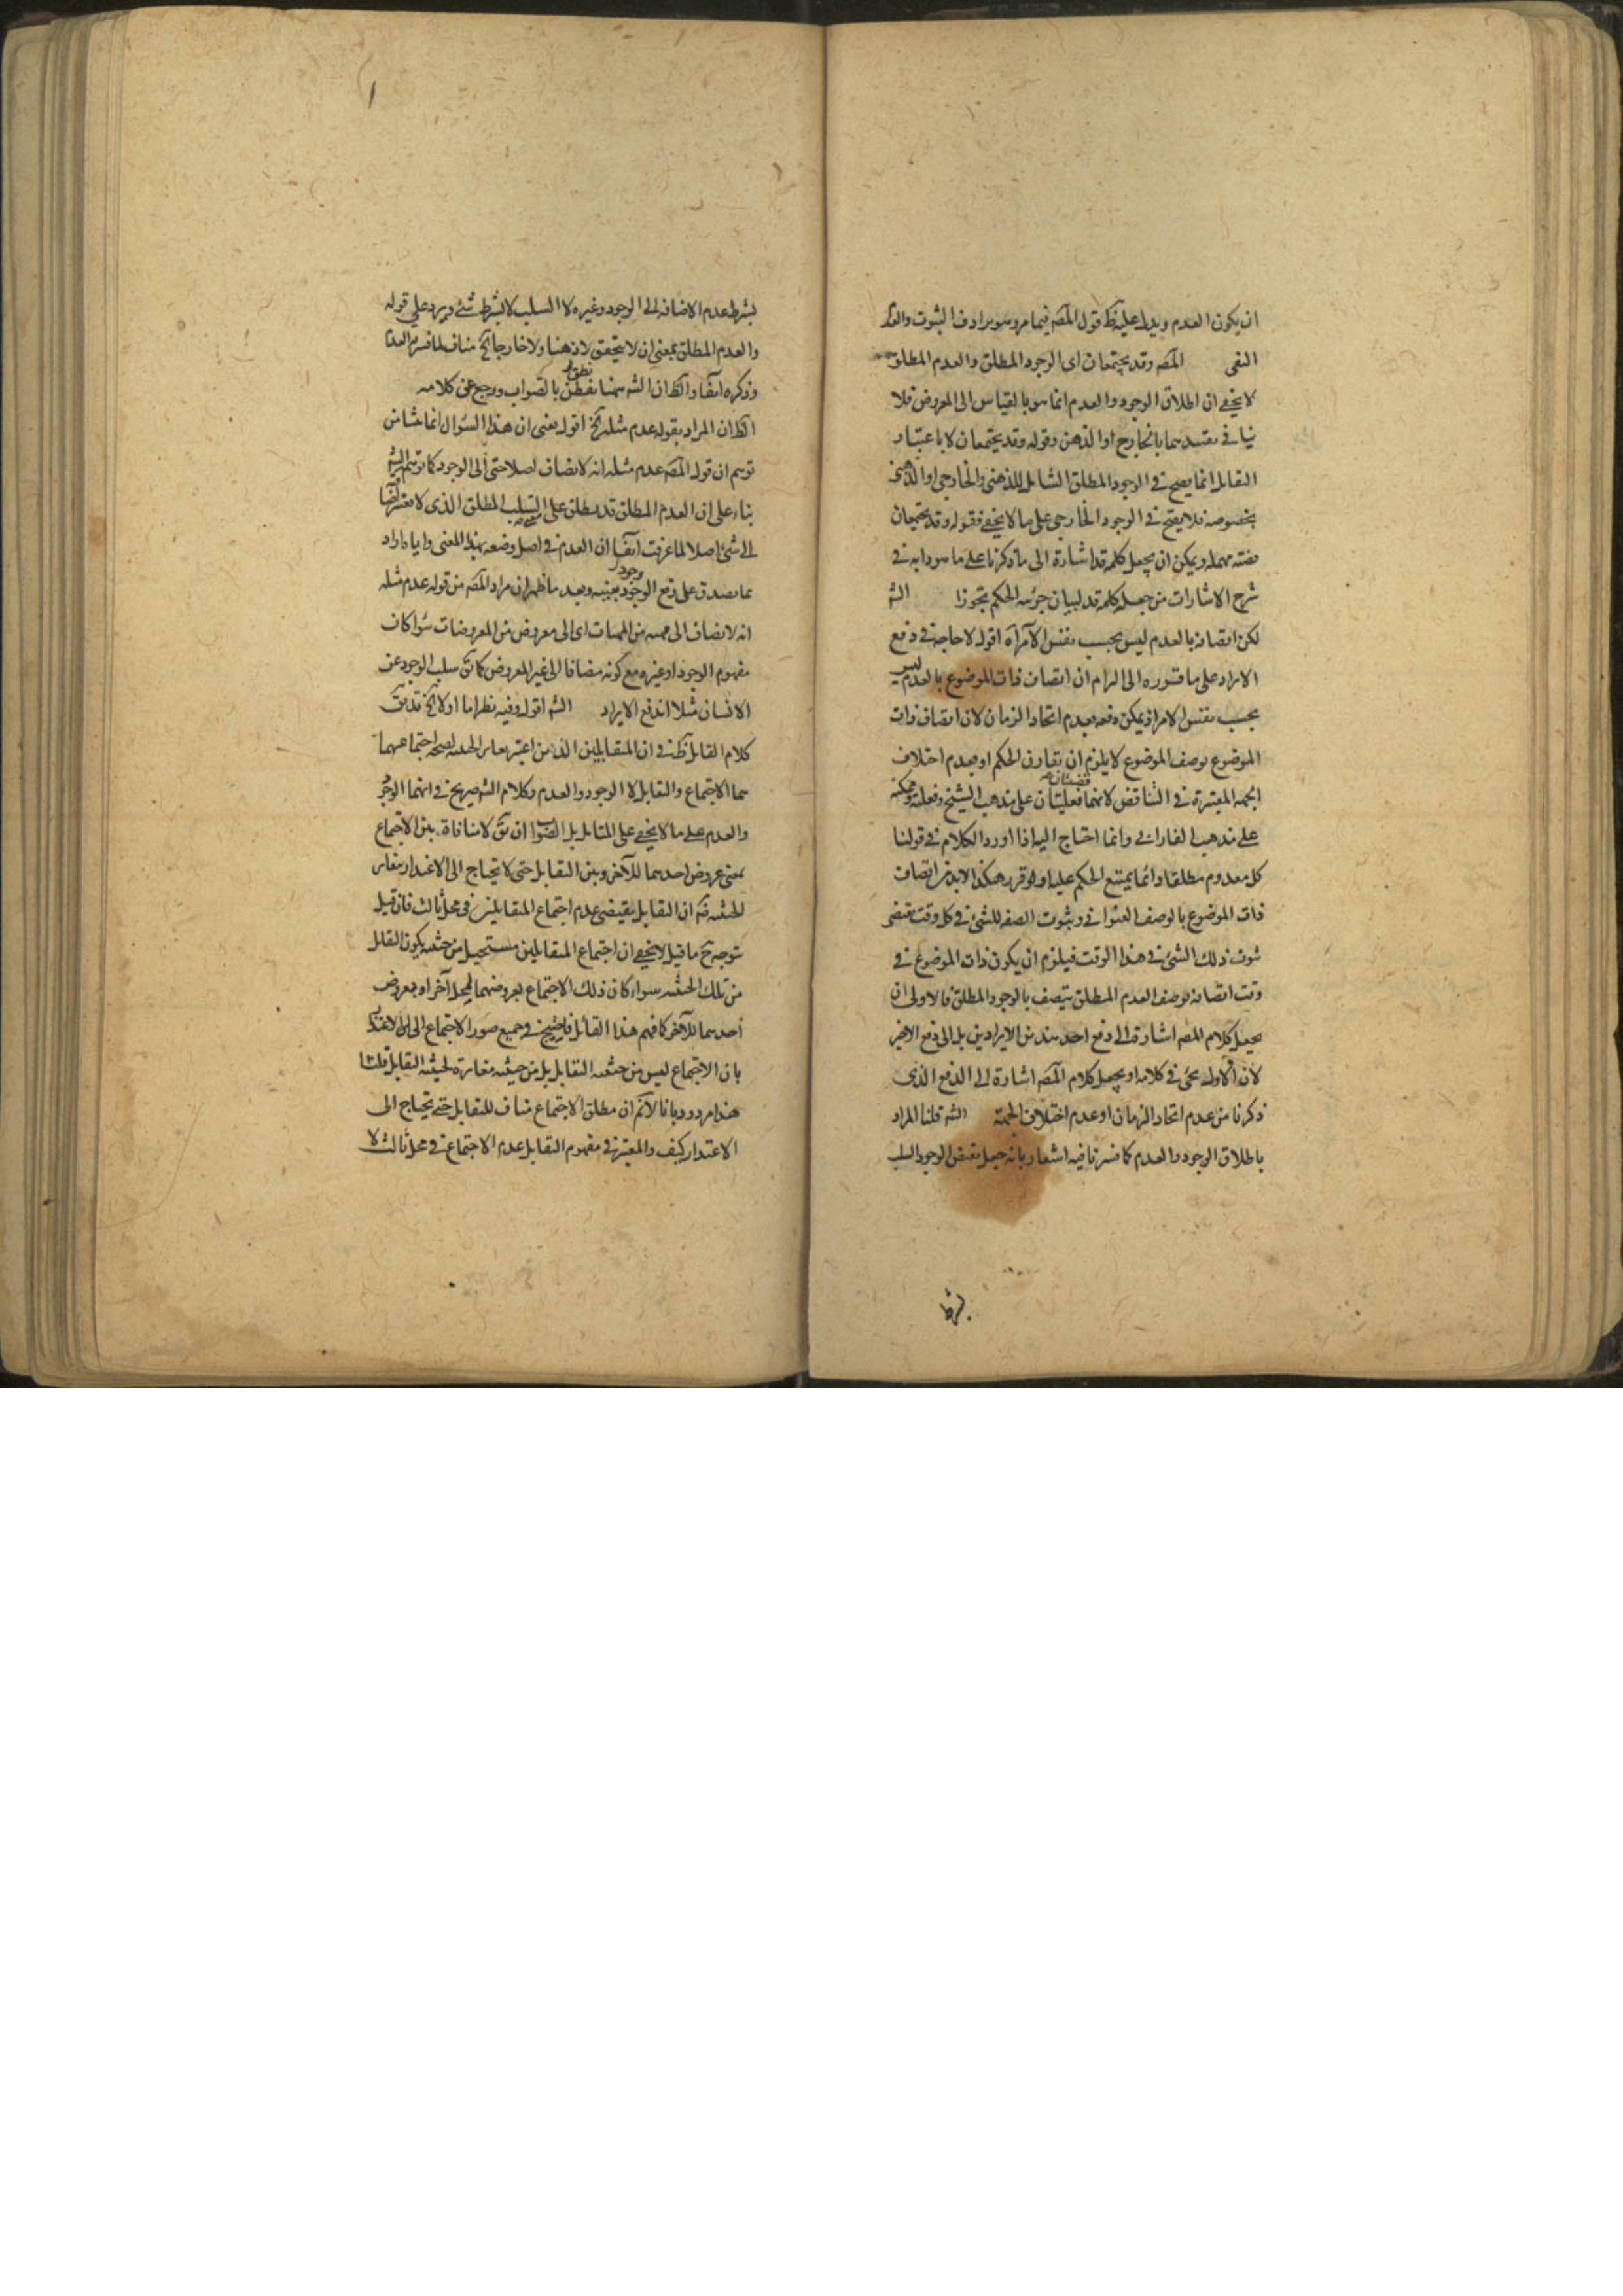 ان يكون العدم ويدل عليه ظ قول المصه فيما مر وهو يرادف الثبوت والعدم
النفى المصه وقد يجتمعان اى الوجود المطلق والعدم المطلق
لا يخفى ان اطلاق الوجود والعدم انما هو بالقياس الى المعروض فلا
ينافى تقييدهما بالخارج او الذهن وقوله وقد يجتمعان لا باعتبار
التقابل انما يصح فى الوجود المطلق الشامل للذهنى والخارجى او الذهنى
بخصوصه فلا يصح فى الوجود الخارجى على ما لا يخفى فقوله وقد يجتمعان
قضية مهملة ويمكن ان يجعل كلمة قد اشارة الى ما ذكرنا على ما هو دابه فى
شرح الاشارات من جعل كلمة قد لبيان جزئية الحكم تجوزا الشه
لكن اتصافه بالعدم ليس بحسب نفس الامر آه اقول لا حاجة فى دفع
الايراد على ما قرره الى الزام ان اتصاف ذات الموضوع بالعدم ليس
بحسب نفس الامر اذ يمكن دفعه بعدم اتحاد الزمان لان اتصاف ذات
الموضوع بوصف الموضوع لا يلزم ان يقارن الحكم او بعدم اختلاف
الجهة المعتبرة فى التناقض لانهما قضيتان فعليتان على مذهب الشيخ وفعلية وممكنة
على مذهب الفارابى وانما احتاج اليه اذا اورد الكلام فى قولنا
كل معدوم مطلقا دائما يمتنع الحكم عليه اولو قرر هكذا لا بد من اتصاف
ذات الموضوع بالوصف العنوانى وثبوت الصفة للشئ فى كل وقت يقتضى
ثبوت ذلك الشئ فى هذا الوقت فيلزم ان يكون ذات الموضوع فى
وقت اتصافه بوصف العدم المطلق يتصف بالوجود المطلق فالاولى ان
يجعل كلام المصه اشارة الى دفع احد هذين الايرادين بل الى دفع الاخير
لان الاول يجئ فى كلامه او يجعل كلام المصه اشارة الى الدفع الذى
ذكرنا من عدم اتحاد الزمان او عدم اختلاف الجهة الشه قلنا المراد
باطلاق الوجود والعدم كما فسرنا فيه اشعار بانه جعل نقيض الوجود السلب
بشرط
بشرط عدم الاضافة الى الوجود وغيره لا السلب لا بشرط شئ ويرد على قوله
والعدم المطلق بمعنى ان لا يتحقق لا ذهنا ولا خارجا الخ مناف لما فسر به العدم
وذكره ايضا والظ ان الشه ههنا تفطن بالصواب ورجع عن كلامه
الظ ان المراد بقوله عدم مثله الخ اقول يعنى ان هذا السؤال انما نشا من
توهم ان قول المصه عدم مثله انه لا يضاف اصلا حتى الى الوجود كما توهم الشه
بناء على ان العدم المطلق قد يطلق على السلب المطلق الذى لا يعتبر
الى شئ اصلا لما عرفت آنفا ان العدم فى اصل وضعه بهذا المعنى واياه اراد
بما يصدق على رفع الوجود بعينه وبعد ما ظهر ان مراد المصه من قوله عدم مثله
انه لا يضاف الى مهية من المهيات اى الى معروض من المعروضات سواء كان
مفهوم الوجود او غيره مع كونه مضافا الى غير المعروض كما تق سلب الوجود عن
الانسان مثلا اندفع الايراد الشه اقول وفيه نظر اما اولا الخ قد تق
كلام القائل ظ فى ان المتقابلين الذين اعتبر تغاير الحيثية لصحة اجتماعهما
هما الاجتماع والتقابل لا الوجود والعدم وكلام الشه صريح فى انهما الوجود
والعدم على ما لا يخفى على المتامل بل الصواب ان تق لا منافاة بين الاجتماع
بمعنى عروض احدهما للآخر وبين التقابل حتى لا يحتاج الى الاعتذار بتغاير
الحيثية ان التقابل يقتضى عدم اجتماع المتقابلين فى محل ثالث فان قيل
توجه ح ما قيل لا يخفى ان اجتماع المتقابلين مستحيل من حيثية يكون التقابل
من تلك الحيثية سواء كان ذلك الاجتماع بعروضهما لمحل آخر او بعروض
احدهما للآخر كما فهم هذا القائل فاحتيج فى جميع صور الاجتماع الى الاعتذار
بان الاجتماع ليس من حيثية التقابل بل من حيثية مغايرة لحيثية التقابل قلنا
هذا مردود بانا لا نم ان مطلق الاجتماع مناف للتقابل حتى يحتاج الى
الاعتذار كيف والمعتبر فى مفهوم التقابل عدم الاجتماع فى محل ثالث لا